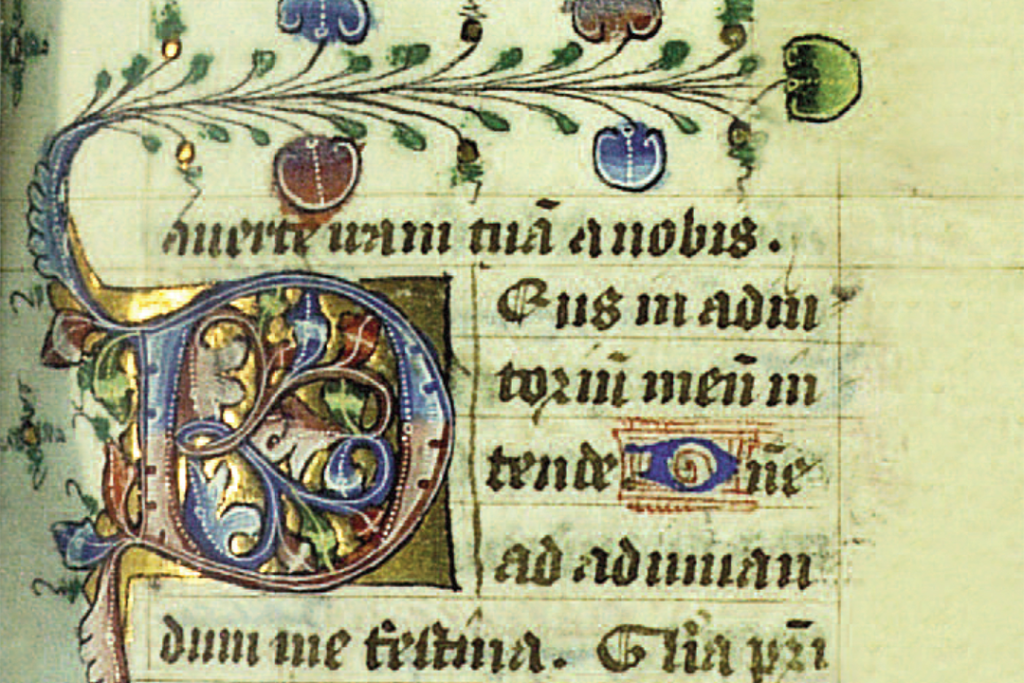 auerte iram tuā a nobis.
DEus in adiu
toriū meū in
tende Dn̄e
ad adiuuan
dum me festina. Gl̄ia pr̄i